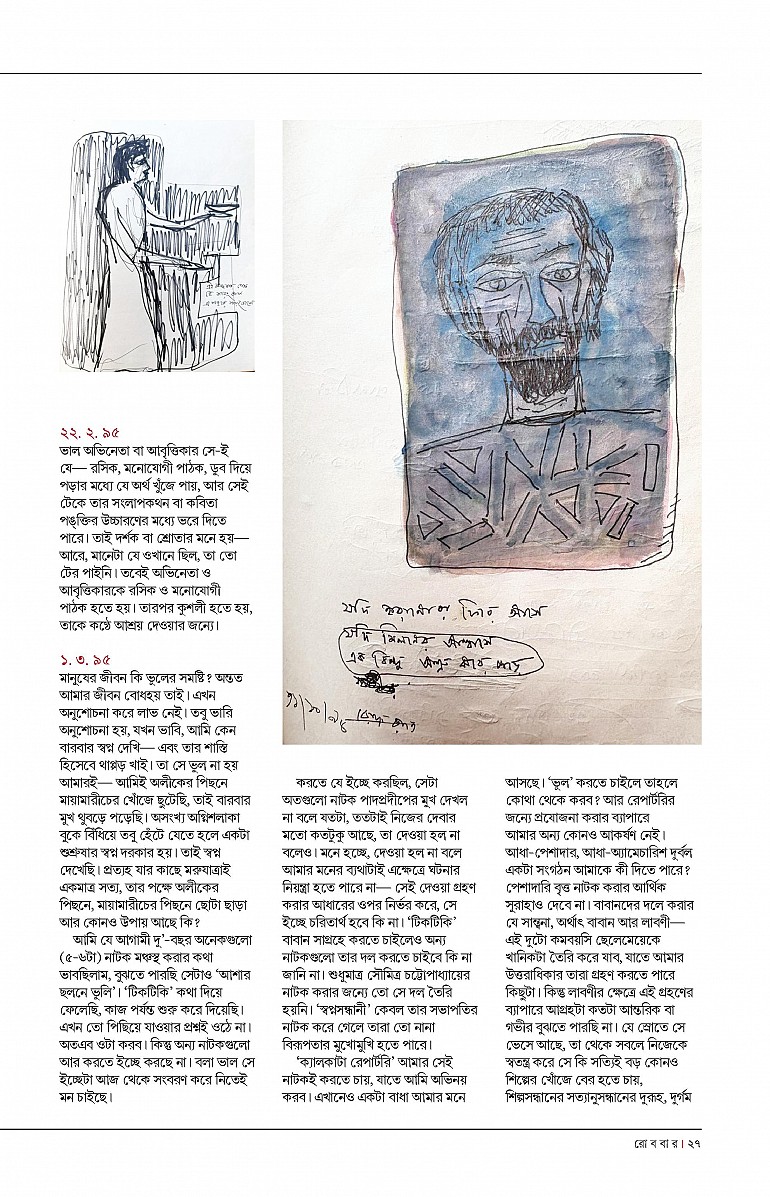 ২২. ২. ৯৫
ভাল অভিনেতা বা আবৃত্তিকার সে-ই
যে— রসিক, মনোযোগী পাঠক, ডুব দিয়ে
পড়ার মধ্যে যে অর্থ খুঁজে পায়, আর সেই
টেকে তার সংলাপকথন বা কবিতা
পঙ্‌ক্তির উচ্চারণের মধ্যে ভরে দিতে
পারে। তাই দর্শক বা শ্রোতার মনে হয়—
আরে, মানেটা যে ওখানে ছিল, তা তো
টের পাইনি। তবেই অভিনেতা ও
আবৃত্তিকারকে রসিক ও মনোযোগী
পাঠক হতে হয়। তারপর কুশলী হতে হয়,
তাকে কণ্ঠে আশ্রয় দেওয়ার জন্যে।
১. ৩. ৯৫
মানুষের জীবন কি ভুলের সমষ্টি? অন্তত
আমার জীবন বোধহয় তাই। এখন
অনুশোচনা করে লাভ নেই। তবু ভারি
অনুশোচনা হয়, যখন ভাবি, আমি কেন
বারবার স্বপ্ন দেখি— এবং তার শাস্তি
হিসেবে থাপ্পড় খাই। তা সে ভুল না হয়
আমারই— আমিই অলীকের পিছনে
মায়ামারীচের খোঁজে ছুটেছি, তাই বারবার
মুখ থুবড়ে পড়েছি। অসংখ্য অগ্নিশলাকা
বুকে বিঁধিয়ে তবু হেঁটে যেতে হলে একটা
শুশ্রূষার স্বপ্ন দরকার হয়। তাই স্বপ্ন
দেখেছি। প্রত্যহ যার কাছে মরুযাত্রাই
একমাত্র সত্য, তার পক্ষে অলীকের
পিছনে, মায়ামারীচের পিছনে ছোটা ছাড়া
আর কোনও উপায় আছে কি?
আমি যে আগামী দু'-বছর অনেকগুলো
(৫-৬টা) নাটক মঞ্চস্থ করার কথা
ভাবছিলাম, বুঝতে পারছি সেটাও 'আশার
ছলনে ভুলি'। 'টিকটিকি' কথা দিয়ে
ফেলেছি, কাজ পর্যন্ত শুরু করে দিয়েছি।
এখন তো পিছিয়ে যাওয়ার প্রশ্নই ওঠে না।
অতএব ওটা করব। কিন্তু অন্য নাটকগুলো
আর করতে ইচ্ছে করছে না। বলা ভাল সে
ইচ্ছেটা আজ থেকে সংবরণ করে নিতেই
মন চাইছে।
যদি
যদি মিলনের
এক বিন্দু
করতে যে ইচ্ছে করছিল, সেটা
অতগুলো নাটক পাদপ্রদীপের মুখ দেখল
না বলে যতটা, ততটাই নিজের দেবার
মতো কতটুকু আছে, তা দেওয়া হল না
বলেও। মনে হচ্ছে, দেওয়া হল না বলে
আমার মনের ব্যথাটাই এক্ষেত্রে ঘটনার
নিয়ন্ত্রা হতে পারে না— সেই দেওয়া গ্রহণ
করার আধারের ওপর নির্ভর করে, সে
ইচ্ছে চরিতার্থ হবে কি না। 'টিকটিকি'
বাবান সাগ্রহে করতে চাইলেও অন্য
নাটকগুলো তার দল করতে চাইবে কি না
জানি না। শুধুমাত্র সৌমিত্র চট্টোপাধ্যায়ের
নাটক করার জন্যে তো সে দল তৈরি
হয়নি। 'স্বপ্নসন্ধানী' কেবল তার সভাপতির
নাটক করে গেলে তারা তো নানা
বিরূপতার মুখোমুখি হতে পারে।
'ক্যালকাটা রেপার্টরি' আমার সেই
নাটকই করতে চায়, যাতে আমি অভিনয়
করব। এখানেও একটা বাধা আমার মনে
আসছে। 'ভুল' করতে চাইলে তাহলে
কোথা থেকে করব? আর রেপার্টরির
জন্যে প্রযোজনা করার ব্যাপারে
আমার অন্য কোনও আকর্ষণ নেই।
আধা-পেশাদার, আধা-অ্যামেচারিশ দুর্বল
একটা সংগঠন আমাকে কী দিতে পারে?
পেশাদারি বৃত্ত নাটক করার আর্থিক
সুরাহাও দেবে না। বাবানদের দলে করার
যে সান্ত্বনা, অর্থাৎ বাবান আর লাবণী—
এই দুটো কমবয়সি ছেলেমেয়েকে
খানিকটা তৈরি করে যাব, যাতে আমার
উত্তরাধিকার তারা গ্রহণ করতে পারে
কিছুটা। কিন্তু লাবণীর ক্ষেত্রে এই গ্রহণের
ব্যাপারে আগ্রহটা কতটা আন্তরিক বা
গভীর বুঝতে পারছি না। যে স্রোতে সে
ভেসে আছে, তা থেকে সবলে নিজেকে
স্বতন্ত্র করে সে কি সত্যিই বড় কোনও
শিল্পের খোঁজে বের হতে চায়,
শিল্পসন্ধানের সত্যানুসন্ধানের দুরূহ, দুর্গম
রোববার। ২৭